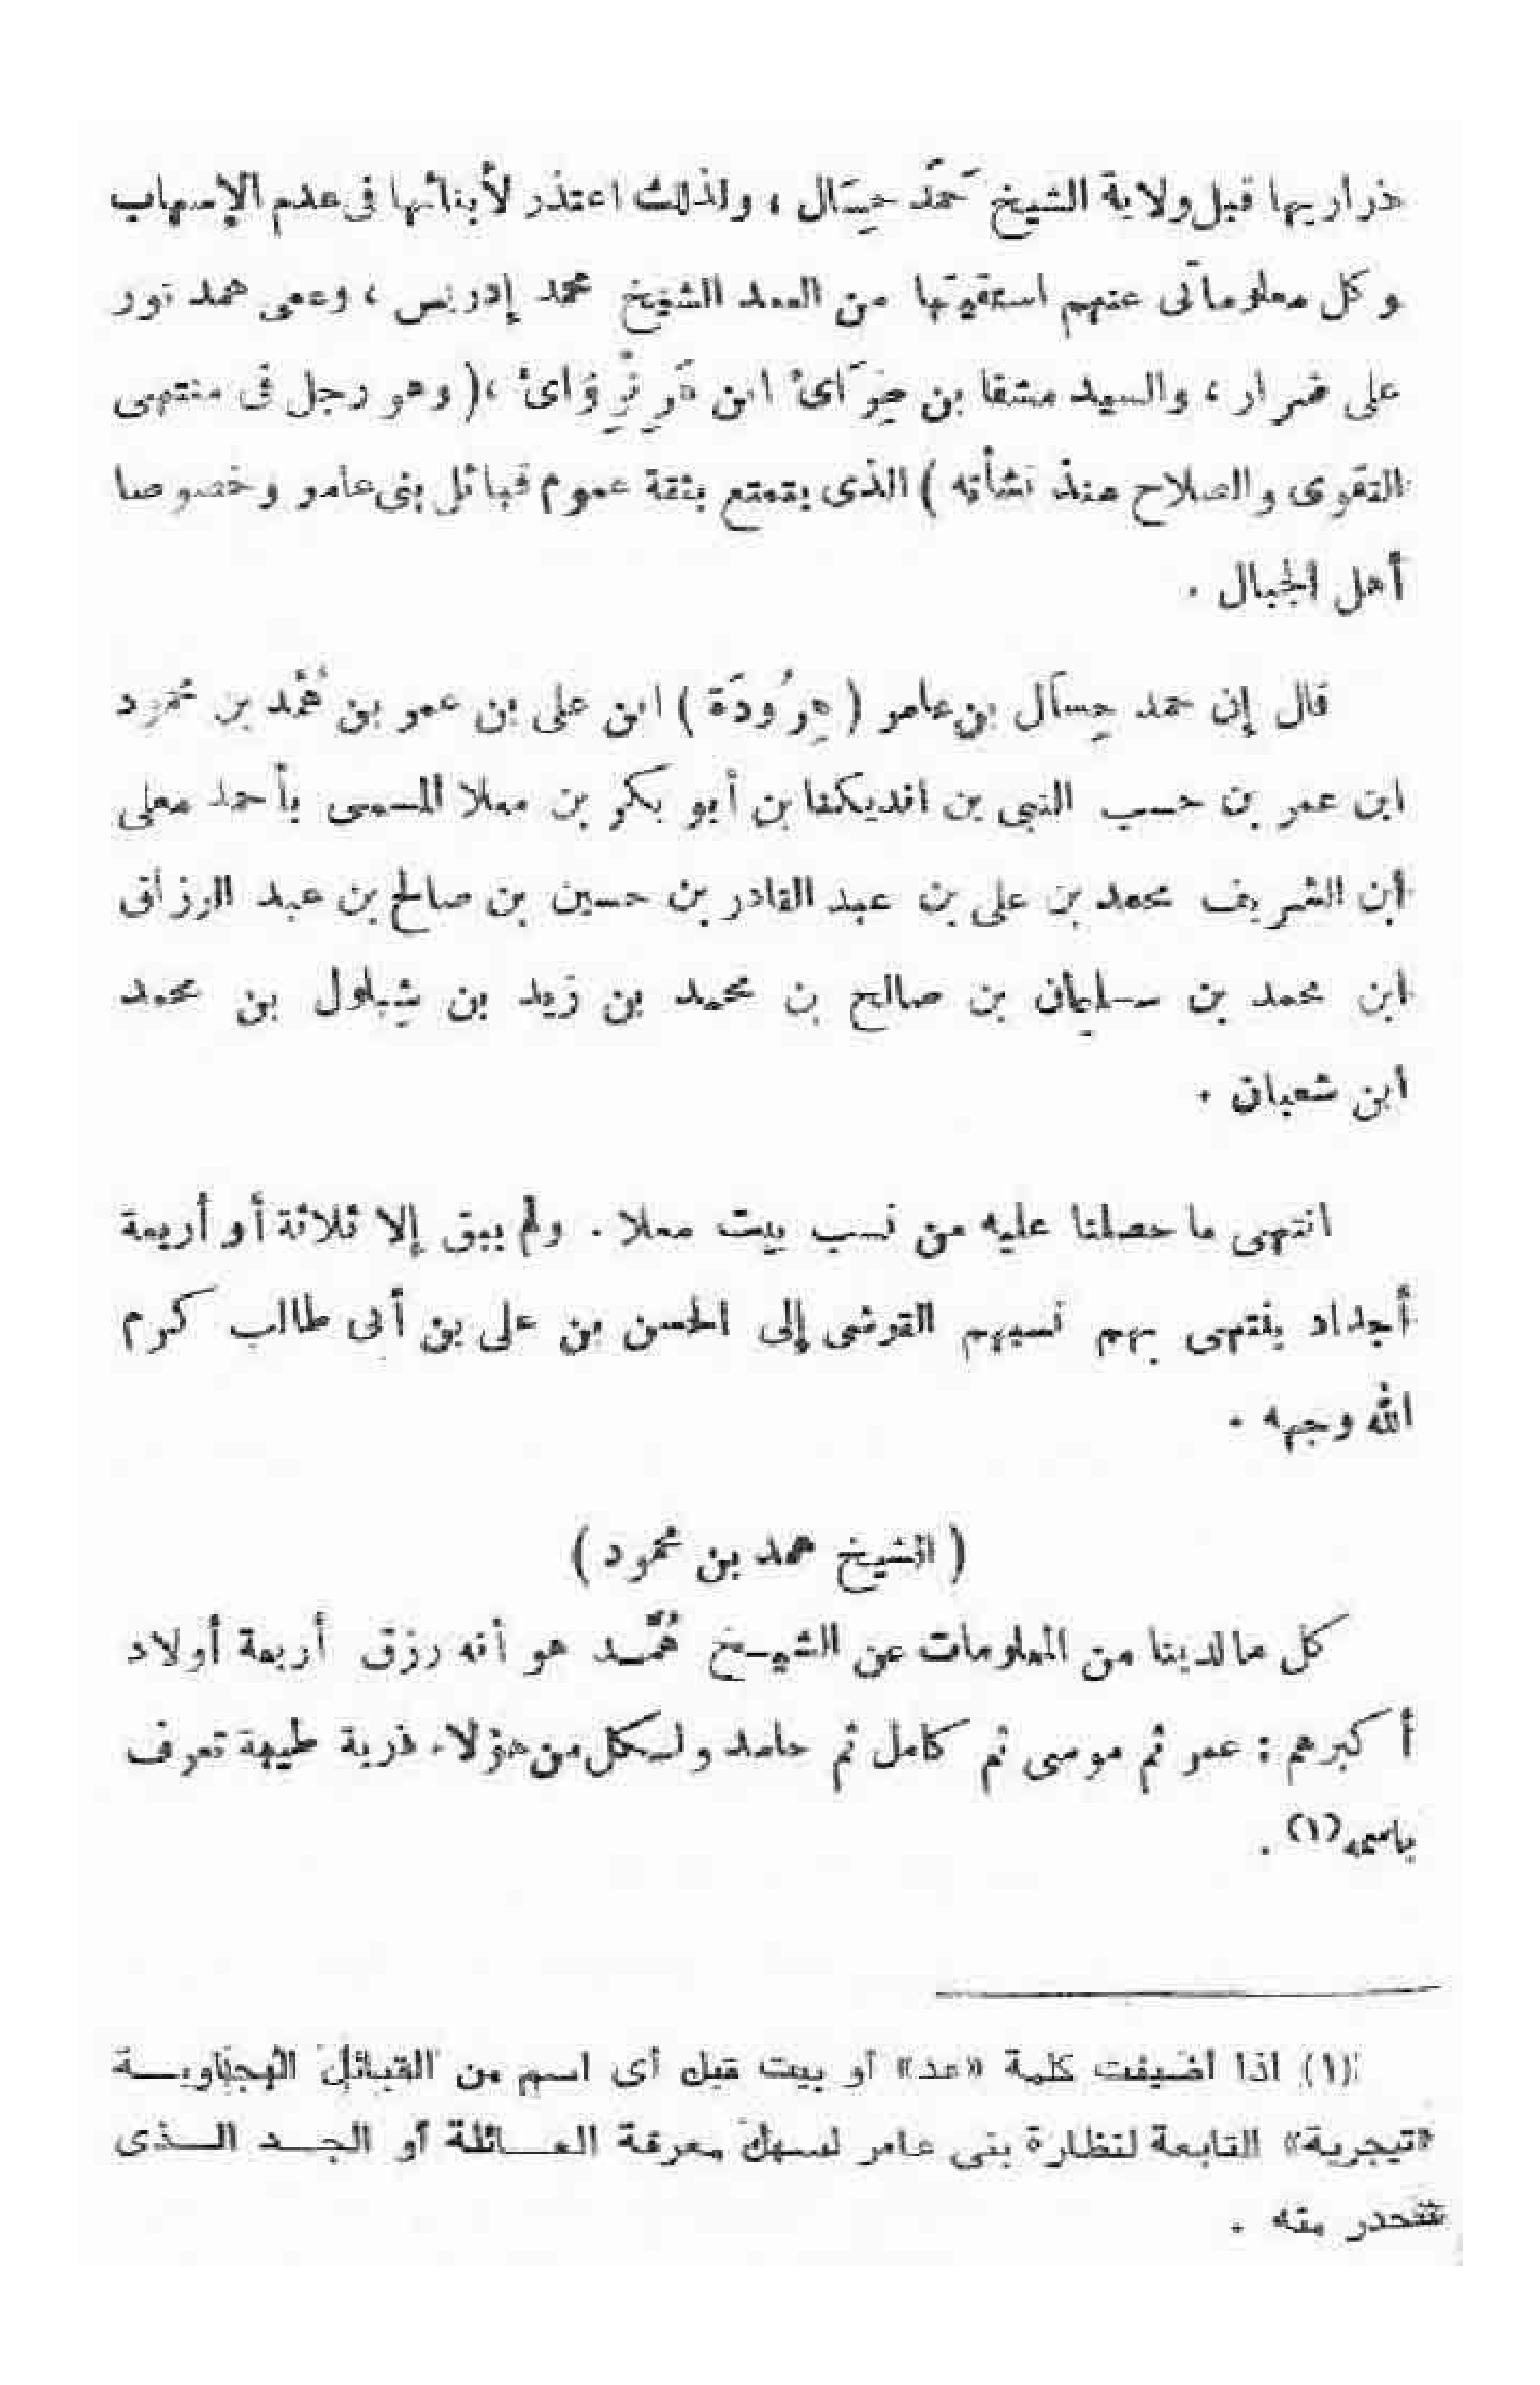 ذراريها قبل ولاية الشيخ حَمَد حِسَال ، ولذلك اعتذر لأبنائها فى عدم الإسهاب
وكل معلوماتى عنهم استقيتها من العمد الشيخ محمد إدريس ، وعمى همد نور
على ضرار ، والسيد مشقا بن ابن ،( وهو رجل فى منتهى
التقوى والصلاح منذ نشأته ) الذى يتمتع بثقة عموم قبائل بنى عامر وخصوصا
أهل الجبال .
قال إن حمد حِسَال بن عامر ( هِرُودَة ) ابن على بن عمر بن هُمَّد بن محمود
ابن عمر بن حسب النبى بن بن أبو بكر بن معلا المسمى بأحمد معلى
ابن الشريف محمد بن على بن عبد القادر بن حسين بن صالح بن عبد الرزاق
ابن محمد بن سليمان بن صالح بن محمد بن زيد بن بن محمد
ابن شعبان .
انتهى ما حصلنا عليه من نسب بيت معلا . ولم يبق إلا ثلاثة أو أربعة
أجداد ينتهى بهم نسبهم القرشى إلى الحسن بن على بن أبى طالب كرم
الله وجهه .
( الشيخ همد بن محمود )
كل ما لدينا من المعلومات عن الشيـخ هُمَّـد هو أنه رزق أربعة أولاد
أكبرهم : عمر ثم موسى ثم كامل ثم حامد ولكل من هؤلاء ذرية طيبة تعرف
باسمه (١) .
(١) اذا اضيفت كلمة «عد» أو بيت قبل أى اسم من القبائل البجاويـة
«تيجرية» التابعة لنظارة بنى عامر لسهل معرفة العـائلة أو الجـد الـذى
تنحدر منه .